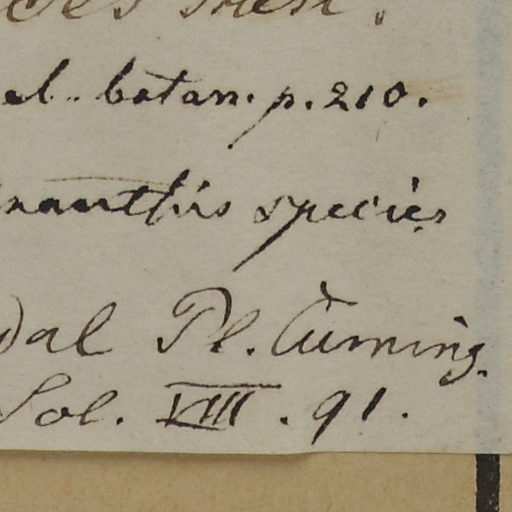 el. botan. p. 210.
nanthus species
dal Pl. Cuming.
Sol. VIII. 91.